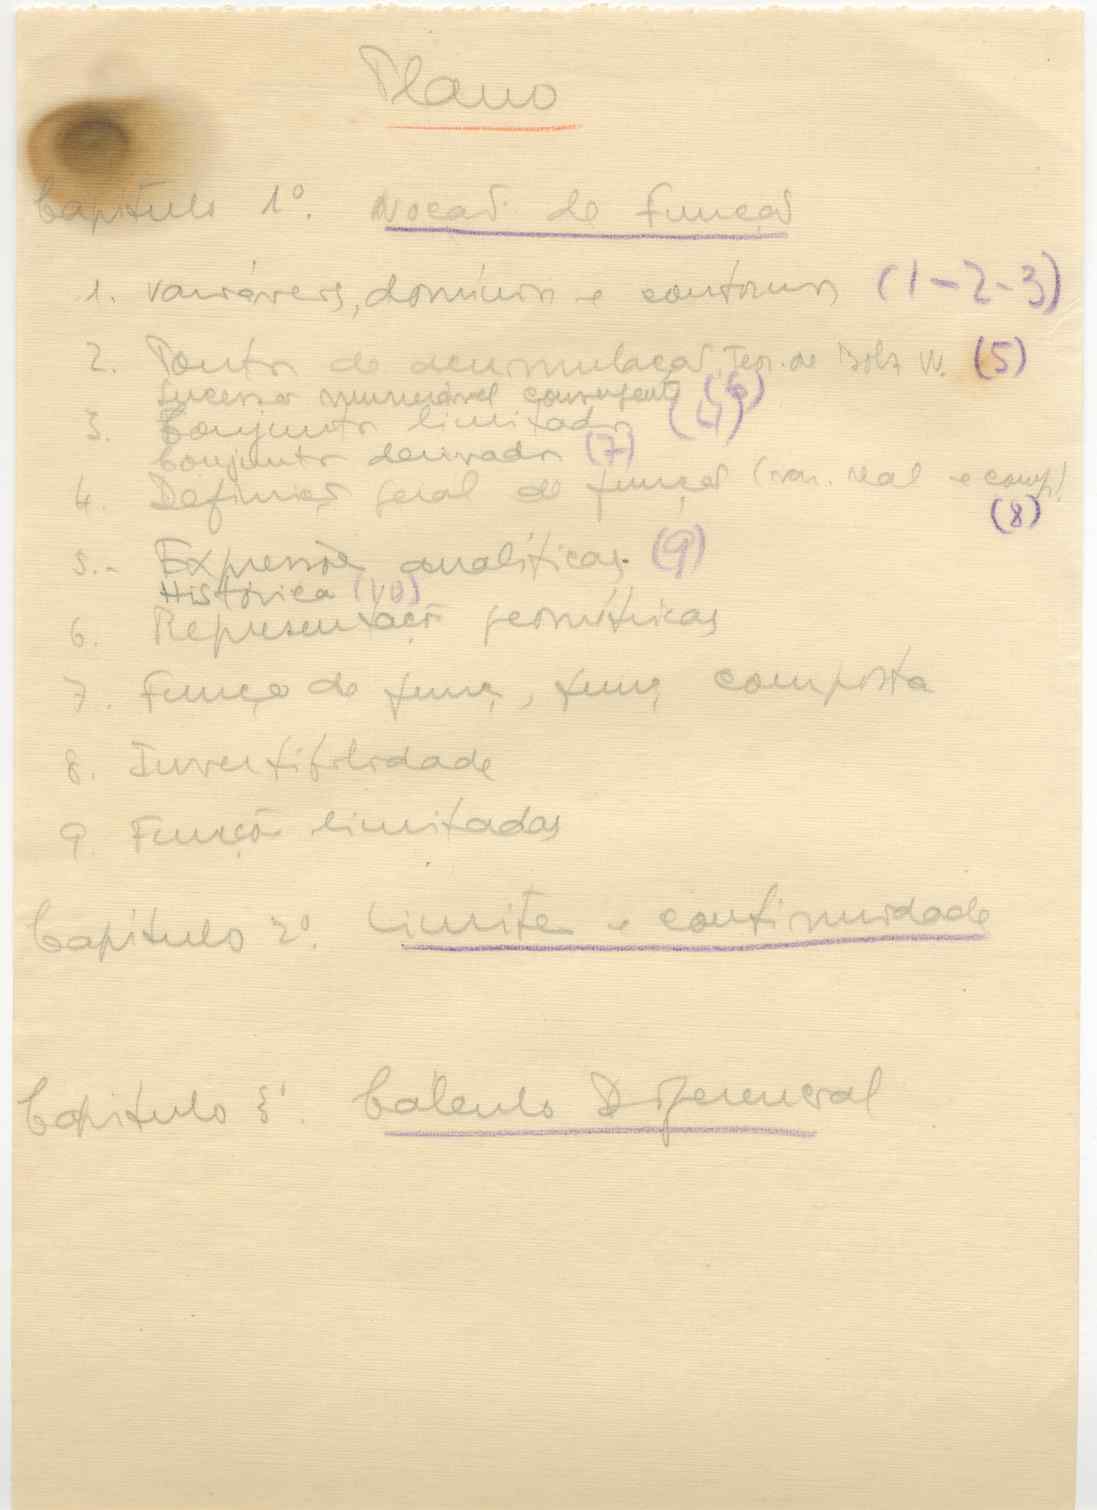 Plano
Capítulo 1º. Noção de função
1. Variáveis, domínios e contornos (1-2-3)
2. Pontos de acumulação. Teor. de Bolz W. (5)
Sucessões numerável convergente (6)
3. Conjuntos limitados (4)
Conjuntos derivados (7)
4. Definição geral de função (var. real e comp)
(8)
5.- Expressões analíticas. (9)
Histórica (10)
6. Representação geométricas
7. Função de funç, funç composta
8. Invertibilidade
9. Funções limitadas
Capítulo 2º. Limites e continuidade
Capítulo 3º. Cálculo Diferencial